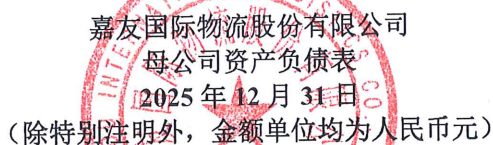 嘉友国际物流股份有限公司
母公司资产负债表
2025 年 12 月 31 日
（除特别注明外，金额单位均为人民币元）